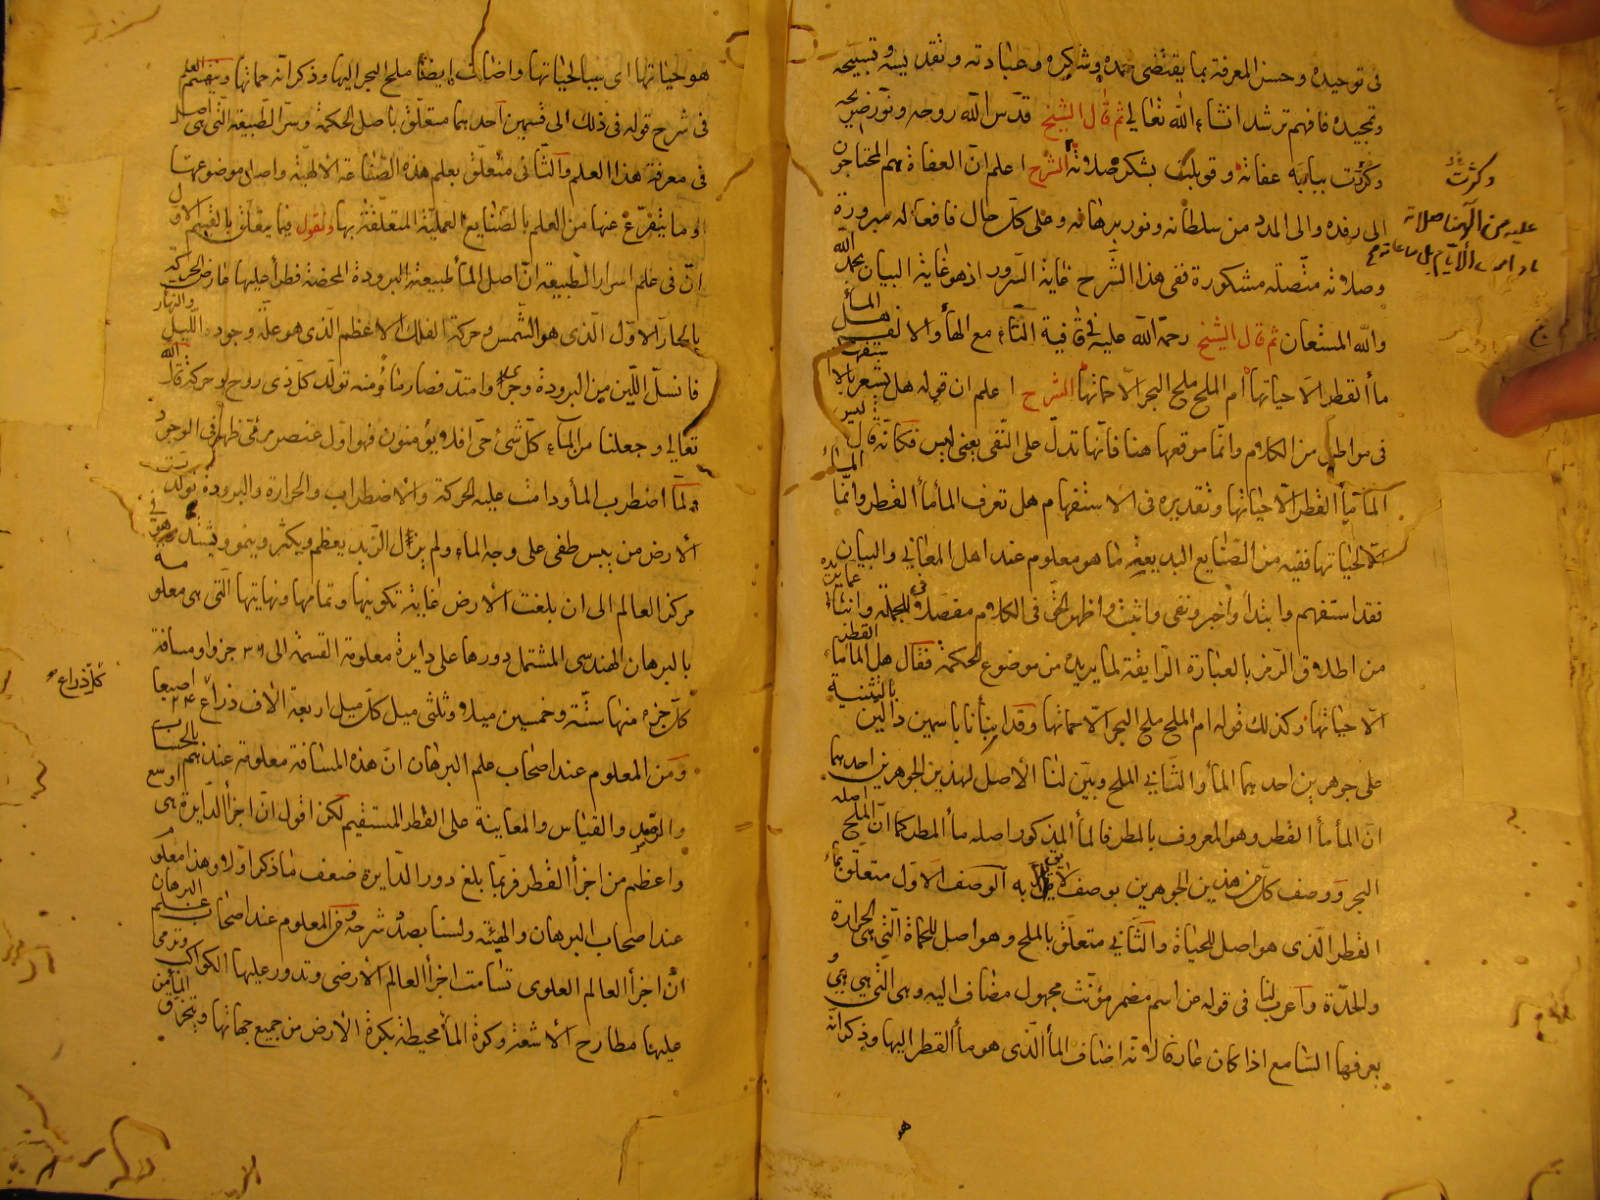 فى توحيده وحسن المعرفة بما يقتضى حمده وشاكره وعبادته وتقديسه وتسبيحه
وتمجيده فافهم ترشد انشاء الله تعالى ثم قال الشيخ قدس الله روحه ونور ضريحه
وكرت ببابه عفاته وقوبلت بشكر صلاته الشرح اعلم ان العفاة هم المحتاجون
الى رفده والى المدد من سلطانه ونور برهانه وعلى كل حال فافعاله مبرورة
وصلاته متصلة مشكورة ففى هذا الشرح غاية السرور اذ هو غاية البيان بحمد الله
والله المستعان ثم قال الشيخ رحمة الله عليه فى قافية التاء مع الهاء والالف هل المأ
مأ القطر الا حياتها ام الملح ملح البحر الا حماتها الشرح اعلم ان قوله هل يشعر بالاستفهام
فى مواطن من الكلام وانما موقعها هنا فانها تدل على النفى بمعنى ليس فكانه قال ليس
المأ مأ القطر الا حياتها وتقديره فى الاستفهام هل تعرف المأ مأ القطر وانما المأ
الا لحياتها ففيه من الصنايع البديعة ما هو معلوم عند اهل المعاني والبيان
فقد استفهم وابتدا واخبر ونفى واثبت واظهر الحق فى الكلام مقصد فى الجملة وانتاء عما يريده
من اطلاق الرمز بالعبارة الرايقة لما يريده من موضوع الحكمة فقال هل المأ مأ القطر
الا حياتها وكذلك قوله ام الملح ملح البحر الا حماتها وقد انبأنا باسمين دالين بالتثنية
على جوهرين احدهما المأ والثاني الملح وبين لنا الاصل لهذين الجوهرين احدهما
ان المأ مأ القطر وهو المعروف بالمطر فالمأ المذكور اصله مأ المطر كما ان الملح اصله
البحر ووصف كل من هذين الجوهرين بوصف لايق به الوصف الاول متعلق بمأ
القطر الذى هو اصل للحياة والثاني متعلق بالملح وهو اصل للحماة التي هي الحرارة
والحدة واعرب لنا فى قوله عن اسم مضمر مؤنث مجهول مضاف اليه وهى التي هي هي و
يعرفها السامع اذا كان عارفا لانه اضاف المأ الذى هو مأ القطر اليها وذكر انه
هو
وكرت
عليه من الهنا صلاته
هو حياتها اى سببا لحياتها واضاف ايضا ملح البحر اليها وذكر انه حماتها وينقسم العلم
فى شرح قوله فى ذلك الى قسمين احدهما متعلق باصل الحكمة وسر الطبيعة التى هى اصل
فى معرفة هذا العلم والثانى متعلق بعلم هذه الصناعة الالهية واصل موضوعها
وما يتفرع عنها من العلم بالصنايع العملية المتعلقة بها ونقول فيما يتعلق بالقسم الاول
ان فى علم اسرار الطبيعة ان اصل المأ طبيعته البرودة المحضة فطرأ عليها عارض الحركة
بالحار الاول الذى هو الشمس وحركة الفلك الاعظم الذى هو علة وجود الليل والنهار
فانسل اللين من البرودة وجرى وامتد فصار مأ ومنه تولد كل ذى روح وحركة قال الله
تعالى وجعلنا من الماء كل شئ حى افلا يؤمنون فهو اول عنصر مرئى ظهر فى الوجود
ولما اضطرب المأ ودامت عليه الحركة والاضطراب والحرارة والبرودة تولدت
الارض من يبس طفى على وجه الماء ولم يزل الزبد يعظم ويكثر وينمو ويشتد وهو فى
مركز العالم الى ان بلغت الارض غاية تكوينها وتمامها ونهايتها التى هى معلومة
بالبرهان الهندسى المشتمل دورها على دايرة معلومة القسمة الى ٣٦ جزوا ومسافة
كل جزء منها ستة وخمسين ميلا وثلثى ميل كل ميل اربعة الاف ذراع ٢٤ اصبعا
كل ذراع
ومن المعلوم عند اصحاب علم البرهان ان هذه المسافة معلومة عندهم بالحساب
والرصد والقياس والمعاينة على القطر المستقيم لكن اقول ان اجزأ الدايرة هى اوسع
واعظم من اجزأ القطر فربما بلغ دور الدايرة ضعف ما ذكر اولا وهذا معلوم
عند اصحاب البرهان والهيئة ولسنا بصدد شرحه ومن المعلوم عند اصحاب علم البرهان
ان اجزأ العالم العلوى تسامت اجزأ العالم الارضى وتدور عليها الكواكب وترمى
عليها مطارح الاشعة وكرة المأ محيطة بكرة الارض من جميع جهاتها وينخرق المأ من